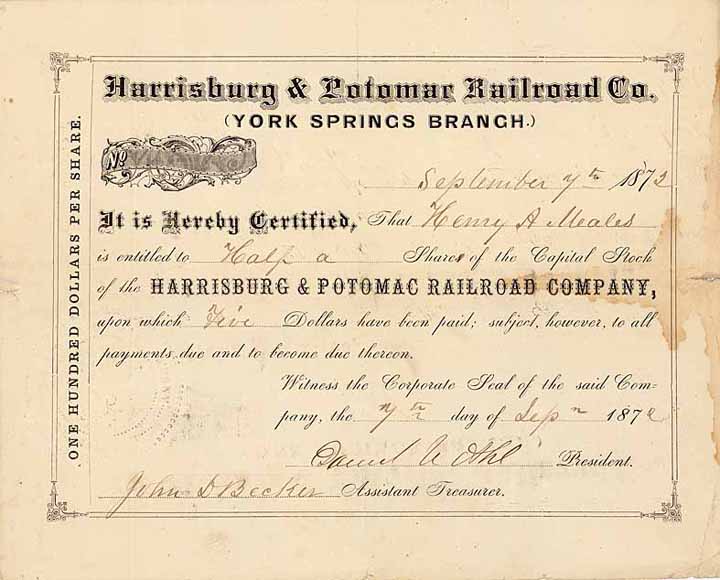 Harrisburg & Potomac Railroad Co.
(YORK SPRINGS BRANCH.)
ONE HUNDRED DOLLARS PER SHARE.
No
September 7th 1872
It is Hereby Certified, That Henry A Meales
is entitled to Half a Shares of the Capital Stock
of the HARRISBURG & POTOMAC RAILROAD COMPANY,
upon which Five Dollars have been paid; subject, however, to all
payments due and to become due thereon.
Witness the Corporate Seal of the said Com-
pany, the 7th day of Sep 1872
Daniel V Ahl President.
John D Becker Assistant Treasurer.